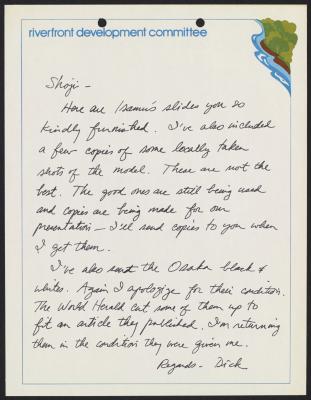 riverfront development committee
Shoji -
Here are Isamu's slides you so
kindly furnished. I've also included
a few copies of some locally taken
shots of the model. These are not the
best. The good ones are still being used
and copies are being made for our
presentation - I'll send copies to you when
I get them.
I've also sent the Osaka black &
whites. Again I apologize for their condition.
The World Herald cut some of them up to
fit an article they published. I'm returning
them in the condition they were given me.
Regards - Dick